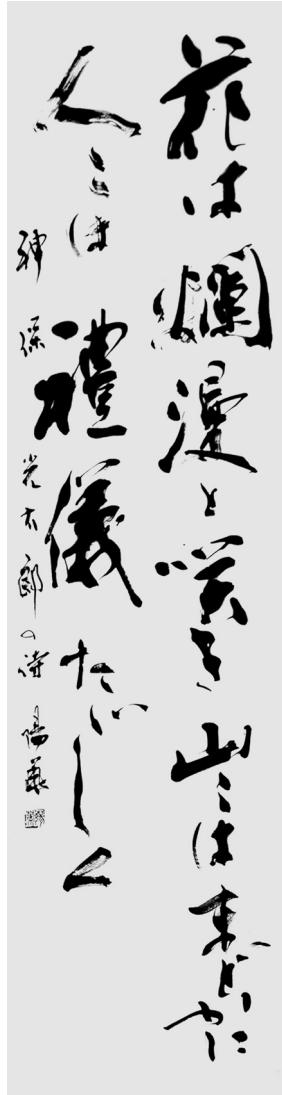 花は爛漫と咲き山々は
人々は禮儀たゞしく
神保光太郎の詩